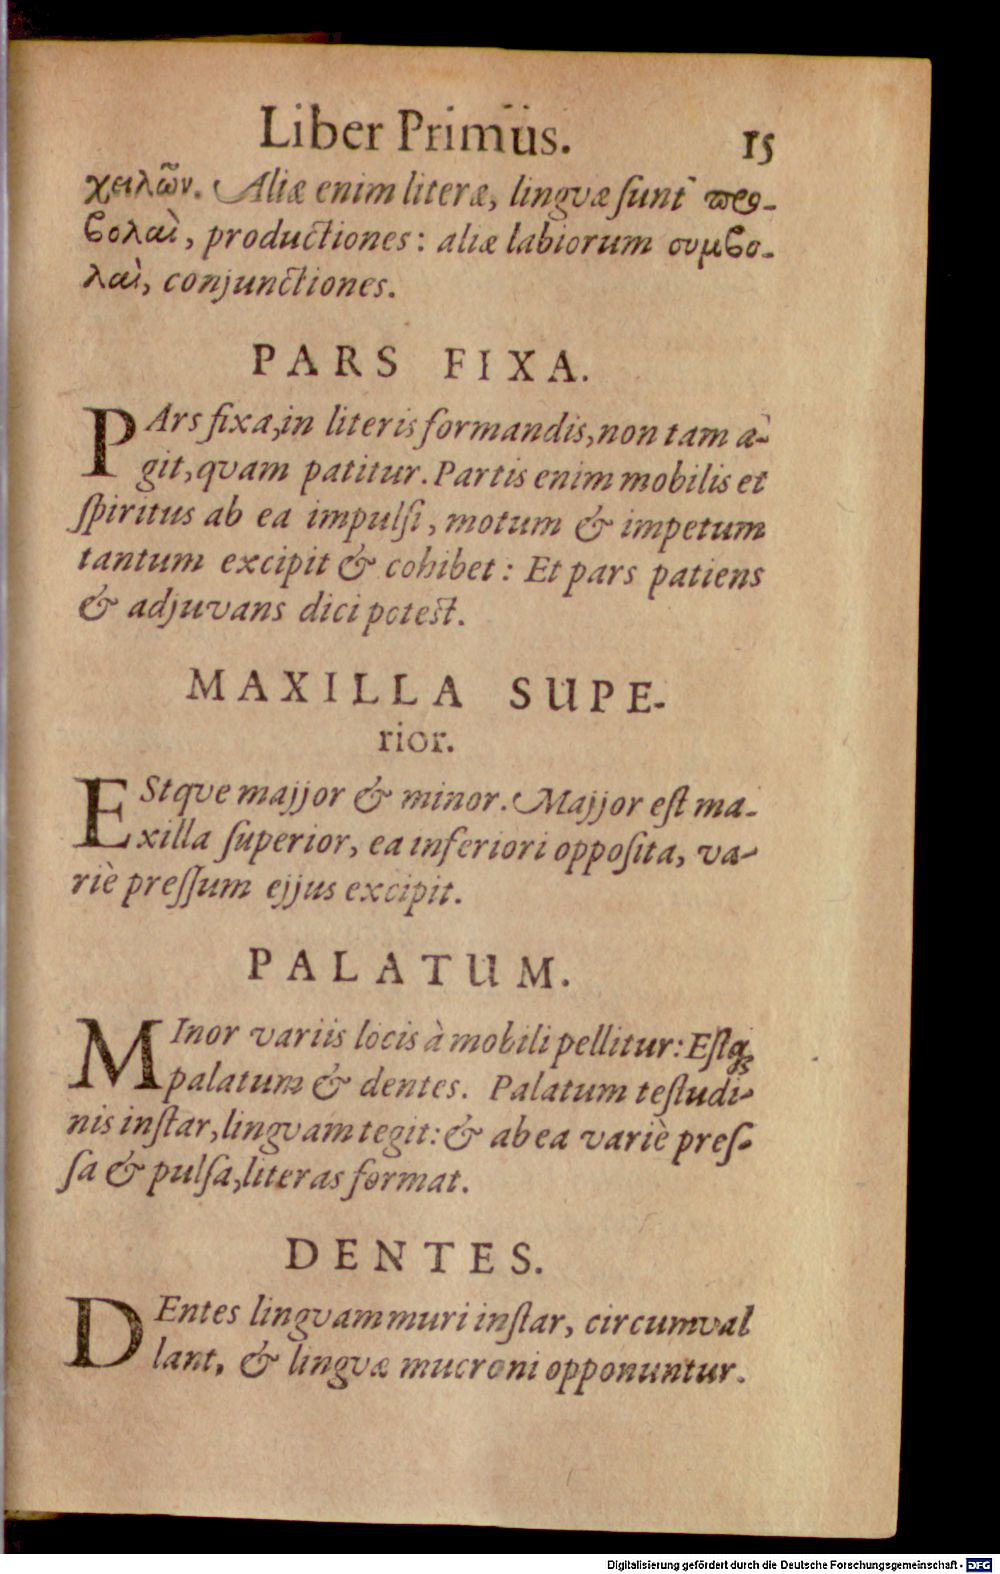 Liber Primus. 15
χειλῶν. Aliæ enim literæ, lingvæ ſunt προ-
βολαὶ, productiones: aliæ labiorum συμβο-
λαὶ, conjunctiones.
PARS FIXA.
PArs fixa, in literis formandis, non tam a-
git, qvam patitur. Partis enim mobilis et
ſpiritus ab ea impulſi, motum & impetum
tantum excipit & cohibet: Et pars patiens
& adjuvans dici poteſt.
MAXILLA SUPE-
rior.
EStqve majjor & minor. Majjor eſt ma-
xilla ſuperior, ea inferiori oppoſita, va-
riè preſſum ejjus excipit.
PALATUM.
MInor variis locis à mobili pellitur: Eſtqꝫ
palatum & dentes. Palatum teſtudi-
nis inſtar, lingvam tegit: & ab ea variè preſ-
ſa & pulſa, literas format.
DENTES.
DEntes lingvam muri inſtar, circumval
lant, & lingvæ mucroni opponuntur.
Digitalisierung gefördert durch die Deutsche Forschungsgemeinschaft - DFG